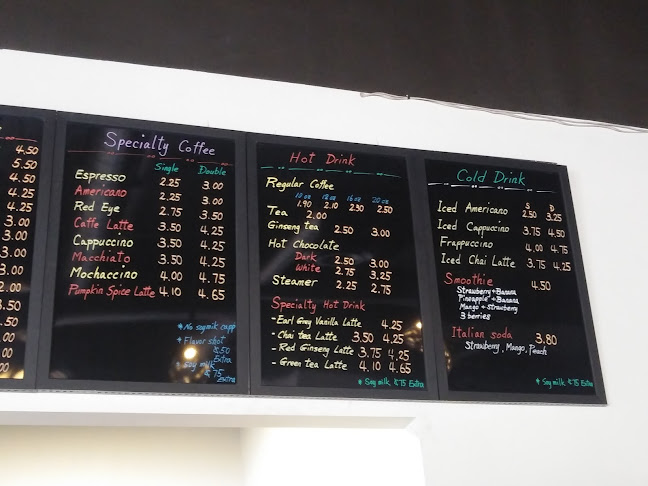 4.50
5.50
4.50
4.25
4.25
3.00
3.00
3.00
2.00
3.50
Specialty Coffee
Single Double
Espresso 2.25 3.00
Americano 2.25 3.00
Red Eye 2.75 3.50
Caffe Latte 3.50 4.25
Cappuccino 3.50 4.25
Macchiato 3.50 4.25
Mochaccino 4.00 4.75
Pumpkin Spice Latte 4.10 4.65
* No soymilk capp
* Flavor shot
$.50
Extra
* Soy milk
$.75
Extra
Hot Drink
Regular Coffee
10 oz 12 oz 16 oz 20 oz
1.90 2.10 2.30 2.50
Tea 2.00
Ginseng tea 2.50 3.00
Hot Chocolate
Dark 2.50 3.00
White 2.75 3.25
Steamer 2.25 2.75
Specialty Hot Drink
- Earl Grey Vanilla Latte 4.25
- Chai tea Latte 3.50 4.25
- Red Ginseng Latte 3.75 4.25
- Green tea Latte 4.10 4.65
* Soy milk $.75 Extra
Cold Drink
S D
Iced Americano 2.50 3.25
Iced Cappuccino 3.75 4.50
Frappuccino 4.00 4.75
Iced Chai Latte 3.75 4.25
Smoothie 4.50
Strawberry + Banana
Pineapple + Banana
Mango + Strawberry
3 berries
Italian soda 3.80
Strawberry, Mango, Peach
* Soy milk $.75 Extra